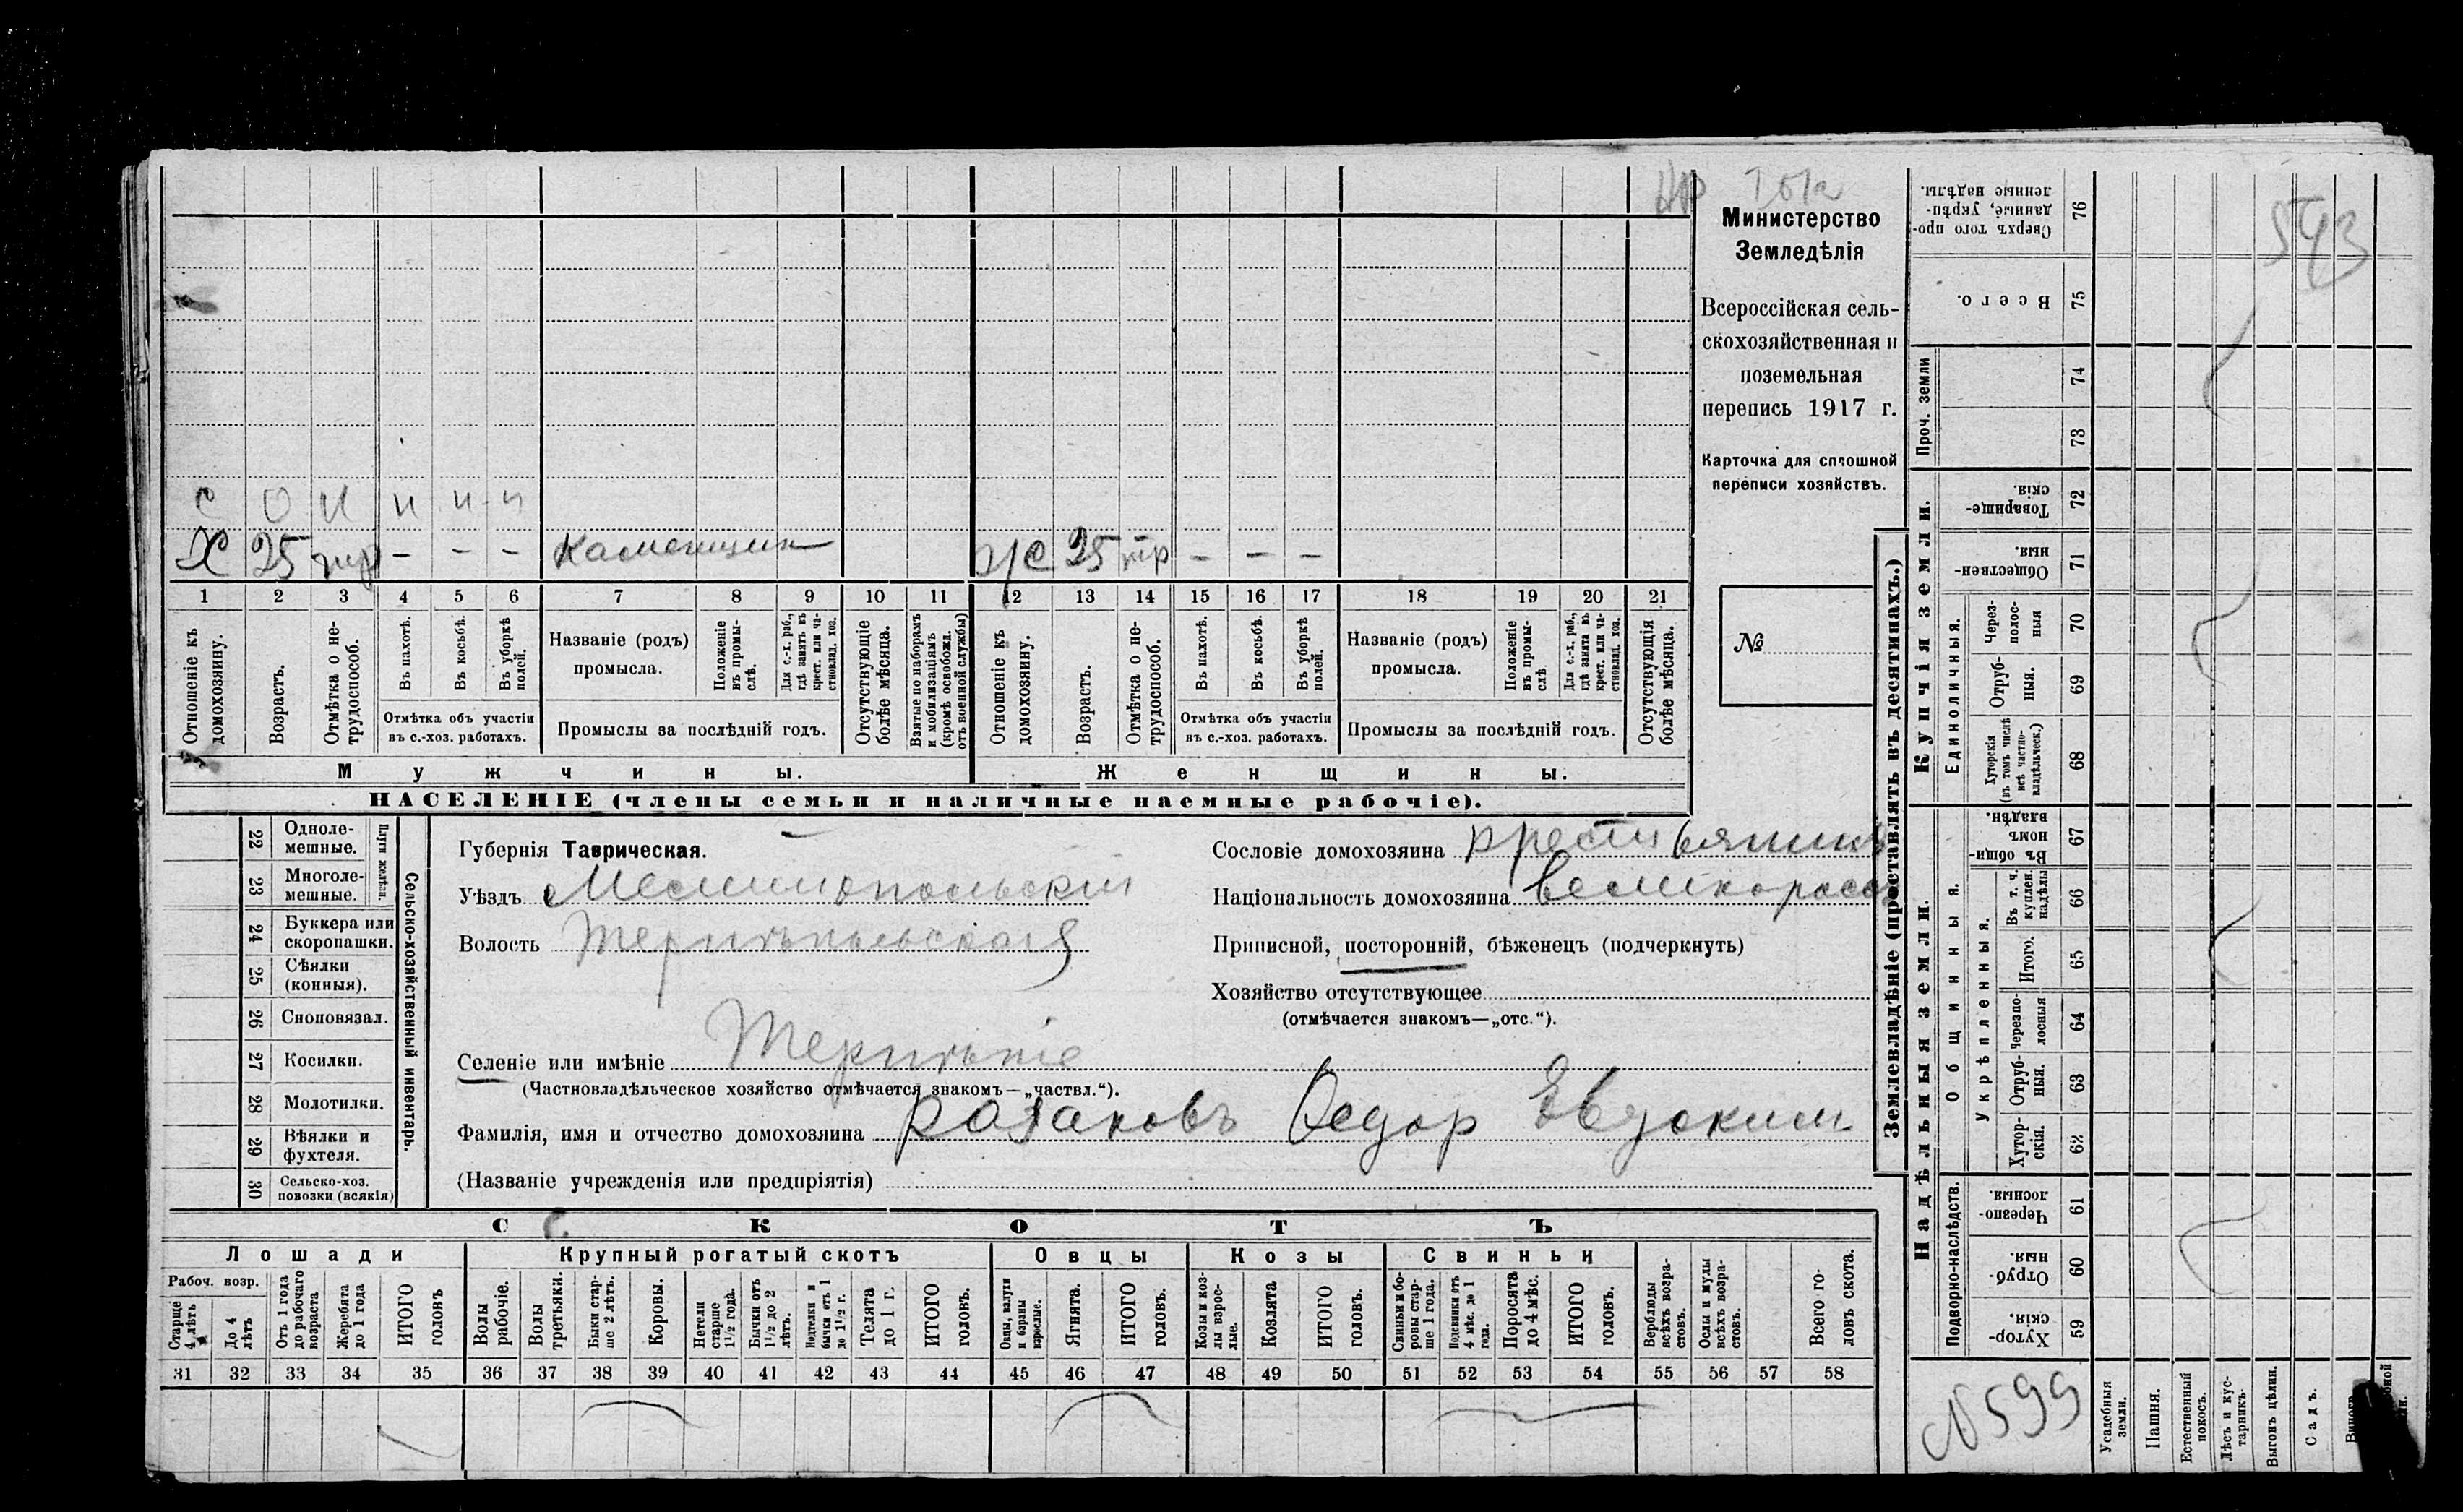 Министерство
Земледѣлія
Всероссійская сель-
скохозяйственная и
поземельная
перепись 1917 г.
Карточка для сплошной
переписи хозяйствъ.
№
543
с 0 н н н н
Х 25 тр – – – Каменщик
ж 25 тр – – –
1 2 3 4 5 6 7 8 9 10 11 12 13 14 15 16 17 18 19 20 21
Отношеніе къ домохозяину.
Возрастъ.
Отмѣтка о не-
трудоспособ.
Въ пахотѣ.
Въ косьбѣ.
Въ уборкѣ полей.
Отмѣтка объ участіи
въ с.-хоз. работахъ.
Названіе (родъ)
промысла.
Положеніе въ промы-
слѣ.
Для с.-х. раб., гдѣ занятъ въ крест. или ча-
стновлад. хоз.
Промыслы за послѣдній годъ.
Отсутствующіе болѣе мѣсяца.
Взятые по наборамъ и мобилизаціямъ (кромѣ освобожд. отъ военной службы)
Отношеніе къ домохозяину.
Возрастъ.
Отмѣтка о не-
трудоспособ.
Въ пахотѣ.
Въ косьбѣ.
Въ уборкѣ полей.
Отмѣтка объ участіи
въ с.-хоз. работахъ.
Названіе (родъ)
промысла.
Положеніе въ промы-
слѣ
Для с.-х. раб., гдѣ занята въ крест. или ча-
стновлад. хоз.
Промыслы за послѣдній годъ.
Отсутствующія болѣе мѣсяца.
Мужчины.
Женщины.
НАСЕЛЕНІЕ (члены семьи и наличные наемные рабочіе).
22 Одноле-
мешные.
23 Многоле-
мешные.
Плуги желѣзн.
24 Буккера или
скоропашки.
25 Сѣялки
(конныя).
26 Сноповязал.
27 Косилки.
28 Молотилки.
29 Вѣялки и
фухтеля.
30 Сельско-хоз.
повозки (всякія)
Сельско-хозяйственный инвентарь.
Губернія Таврическая.
Уѣздъ Мелитопольскій
Волость
Селеніе или имѣніе
(Частновладѣльческое хозяйство отмѣчается знакомъ—„частвл.“).
Фамилія, имя и отчество домохозяина Казаковъ Ѳедор Евдоким
(Названіе учрежденія или предпріятія)
Сословіе домохозяина крестьянинъ
Національность домохозяина великоросс
Приписной, посторонній, бѣженецъ (подчеркнуть)
Хозяйство отсутствующее
(отмѣчается знакомъ—„отс.“).
СКОТЪ
Лошади Крупный рогатый скотъ Овцы Козы Свиньи
Рабоч. возр.
Старше 4 лѣтъ
До 4 лѣтъ
Отъ 1 года до рабочаго возраста
Жеребята до 1 года
ИТОГО головъ
Волы рабочіе.
Волы третьяки.
Быки стар-
ше 2 лѣтъ.
Коровы.
Нетели старше 1½ года.
Бычки отъ 1½ до 2 лѣтъ.
Подтелки и бычки отъ 1 до 1½ г.
Телята до 1 г.
ИТОГО головъ.
Овцы, валухи и бараны взрослые.
Ягнята.
ИТОГО головъ.
Козы и коз-
лы взрос-
лые.
Козлята
ИТОГО головъ.
Свиньи и бо-
ровы стар-
ше 1 года.
Подсвинки отъ 4 мѣс. до 1 года.
Поросята до 4 мѣс.
ИТОГО головъ.
Верблюды всѣхъ возра-
стовъ.
Ослы и мулы всѣхъ возра-
стовъ.
Всего го-
ловъ скота.
31 32 33 34 35 36 37 38 39 40 41 42 43 44 45 46 47 48 49 50 51 52 53 54 55 56 57 58
Землевладѣніе (проставлять въ десятинахъ.)
Надѣльныя земли.
Купчія земли.
Проч. земли
Подворно-наслѣдств.
Общинныя.
Укрѣпленныя.
Единоличныя.
Сверхъ того про-
данные, укрѣп-
ленные надѣлы. 76
Всего. 75
74
73
Товарище-
скія. 72
Обществен-
ныя. 71
Через-
полос-
ныя 70
Отруб-
ныя. 69
Хуторскія (въ томъ числѣ всѣ частно-
владѣльческ.) 68
Въ общи-
номъ
владѣн. 67
Въ т. ч. куплен. надѣлы 66
Итого. 65
Черезпо-
лосныя 64
Отруб-
ныя. 63
Хутор-
скія. 62
Черезпо-
лосныя. 61
Отруб-
ныя. 60
Хутор-
скія. 59
№ 599
Усадебныя земли.
Пашня.
Естественный покосъ.
Лѣсъ и кус-
тарникъ.
Выгонъ цѣлин.
Садъ.